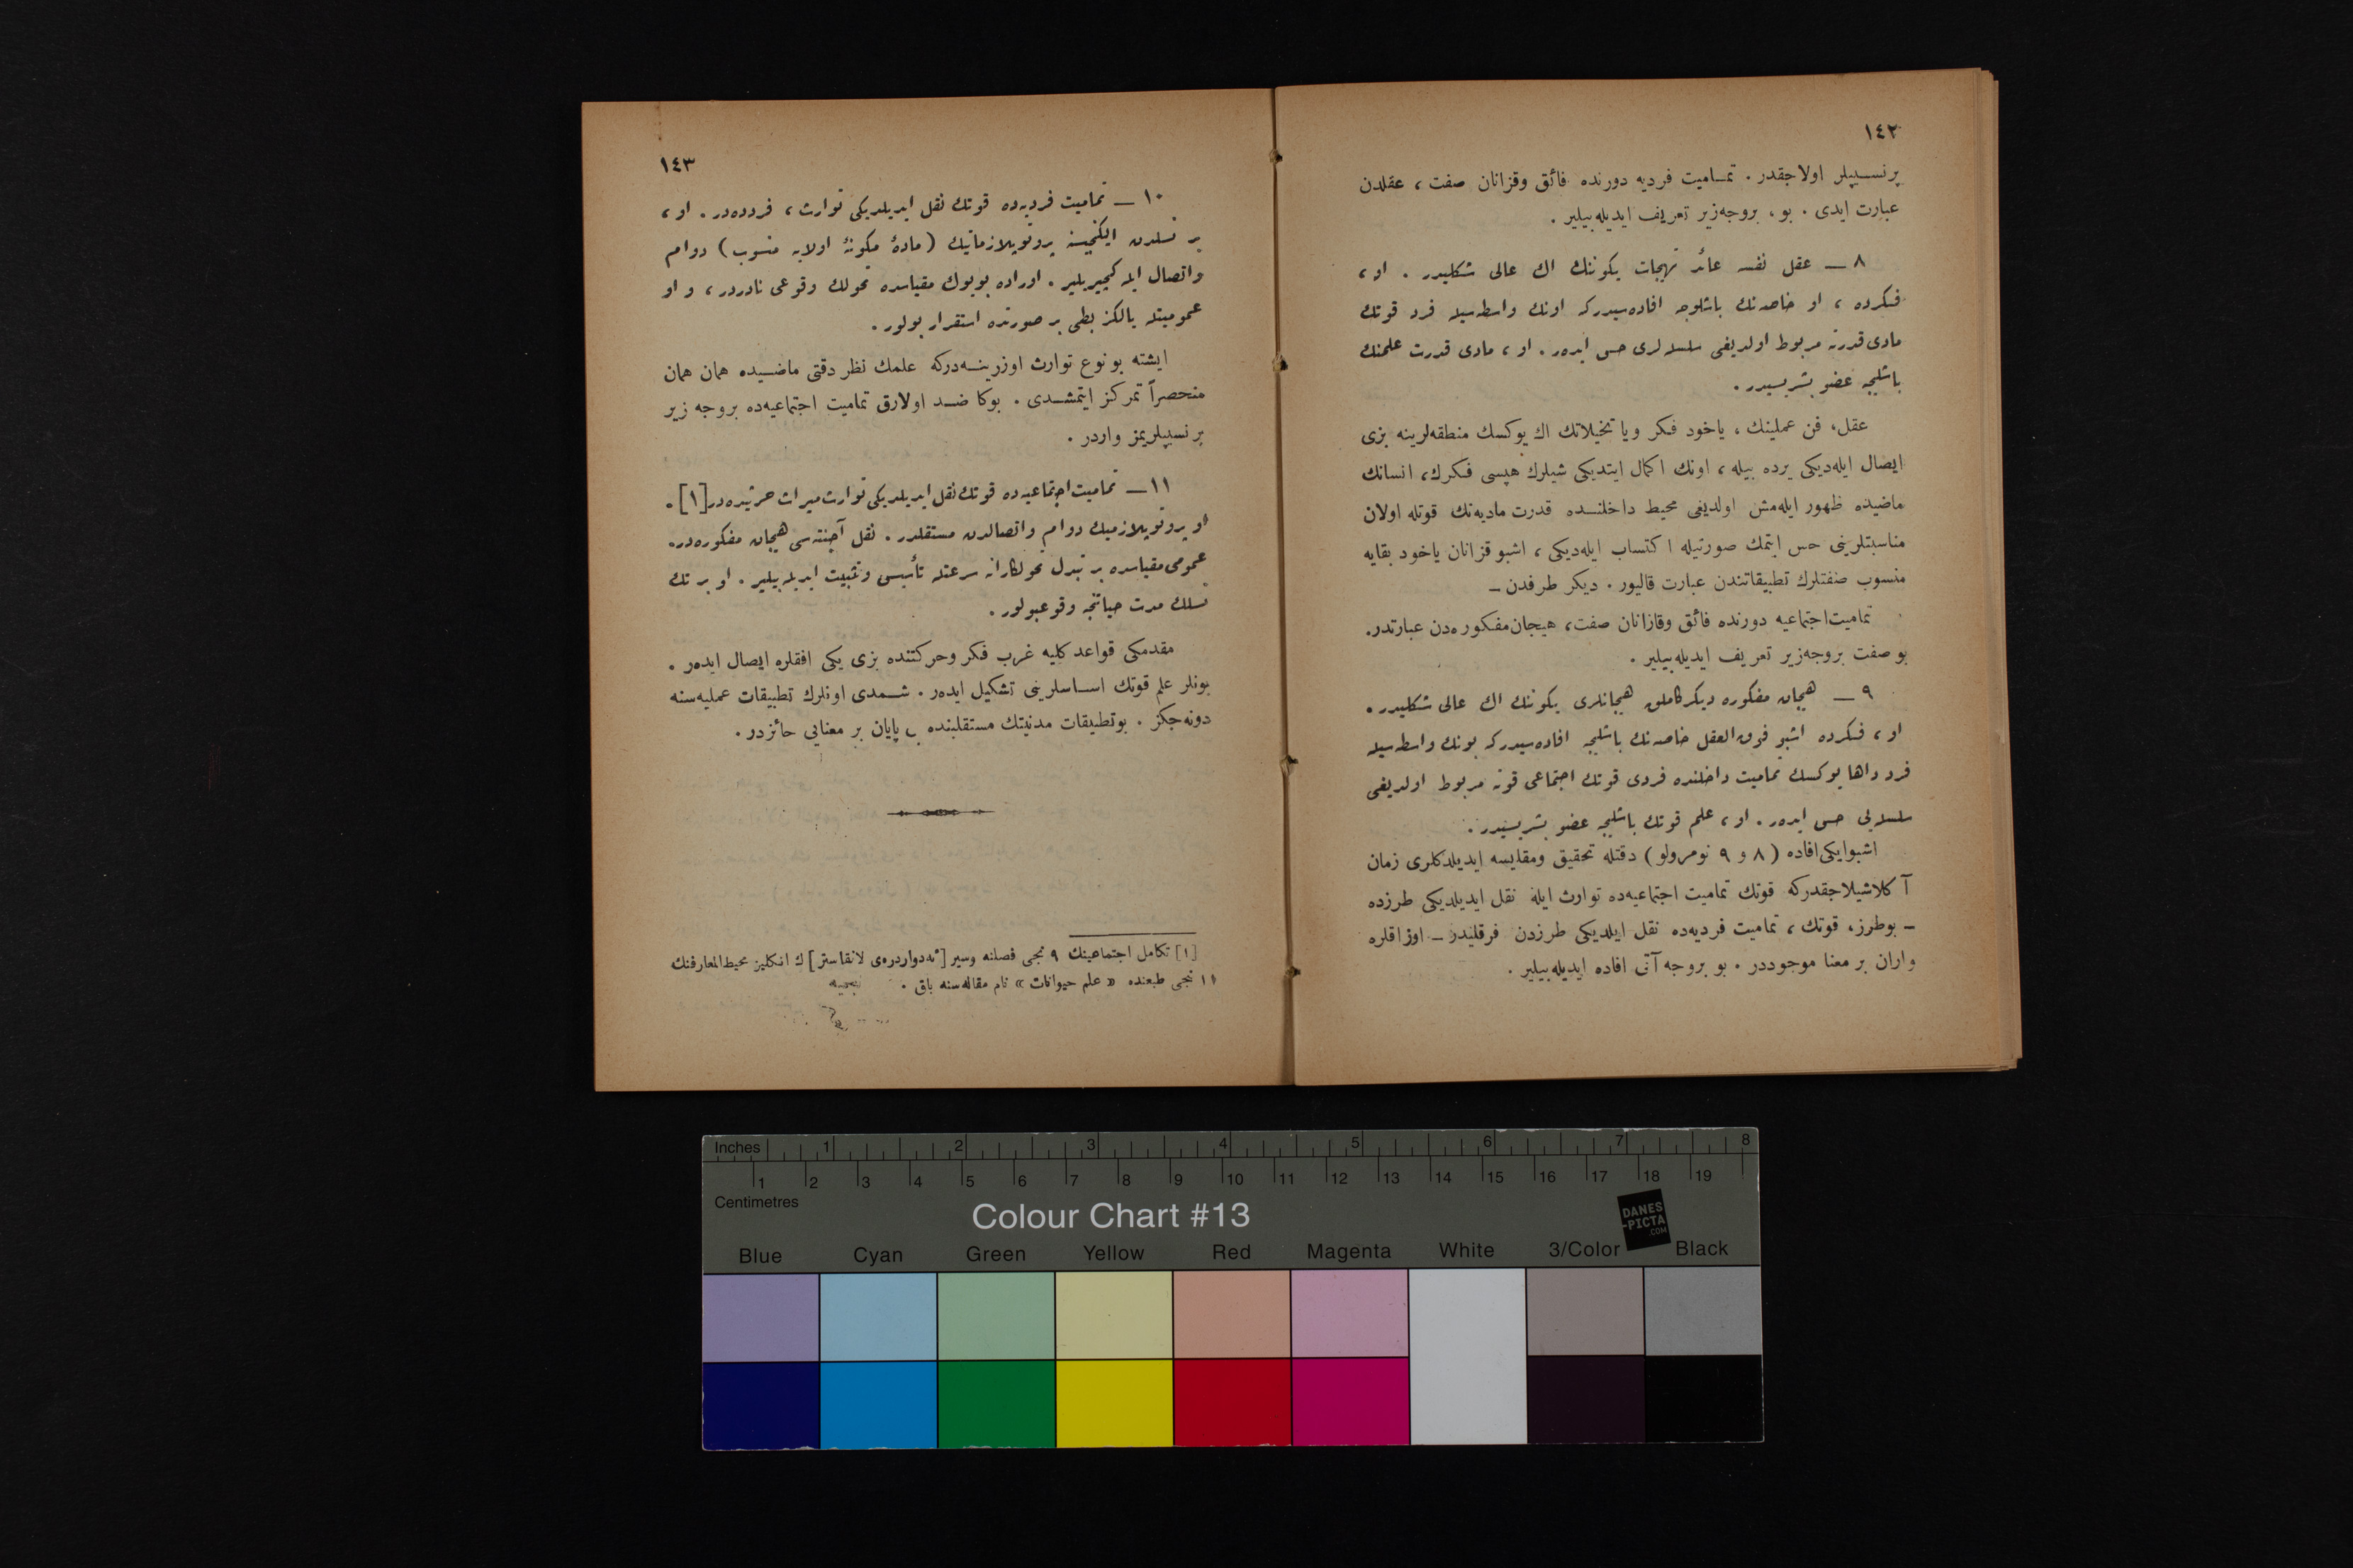 ١٤٢
پرنسیپلر اولاجقدر . تمامیت فردیه دورنده فائق وقزانان صفت ، عقلدن
عبارت ایدی . بو ، بروجه‌زیر تعریف ایدیله‌بیلیر .
٨ — عقل نفسه عائد تهیجات یکوننك اك عالی شكلیدر . او ،
فكرده ، او خاصه‌نك باشلوجه افاده‌سیدركه اونك واسطه‌سیله فرد قوتك
مادی قدرته مربوط اولدیغی سلسله‌لری حس ایده‌ر . او ، مادی قدرت علمنك
باشلیجه عضو بشریسیدر .
عقل ، فن عملینك ، یاخود فكر ویا تخیلاتك اك یوكسك منطقه‌لرینه بزی
ایصال ایله‌دیكی یرده بیله ، اونك اكمال ایتدیكی شیلرك هپسی فكرك ، انسانك
ماضیده ظهور ایله‌مش اولدیغی محیط داخلنده قدرت مادیه‌نك قوتله اولان
مناسبتلرینی حس ایتمك صورتیله اكتساب ایله‌دیكی ، اشبو قزانان یاخود بقایه
منسوب صفتلرك تطبیقاتندن عبارت قالیور . دیكر طرفدن —
تمامیت اجتماعیه دورنده فائق وقازانان صفت ، هیجان مفكوره‌دن عبارتدر.
بو صفت بروجه‌زیر تعریف ایدیله‌بیلیر .
٩ — هیجان مفكوره دیكركاملق هیجانلری یكوننك اك عالی شكلیدر .
او ، فكرده اشبو فوق العقل خاصه‌نك باشلیجه افاده‌سیدركه بونك واسطه‌سیله
فرد داها یوكسك تمامیت داخلنده فردی قوتك اجتماعی قوته مربوط اولدیغی
سلسله‌یی حس ایده‌ر . او ، علم قوتك باشلیجه عضو بشریسیدر .
اشبوایكی افاده (٨ و ٩ نومرولو) دقتله تحقیق ومقایسه ایدیلدكلری زمان
آكلاشیلاجقدركه قوتك تمامیت اجتماعیه‌ده توارث ایله نقل ایدیلدیكی طرزده
— بوطرز، قوتك ، تمامیت فردیه‌ده نقل ایلدیكی طرزدن فرقلیدر — اوزاقلره
واران بر معنا موجوددر . بو بروجه آتی افاده ایدیله‌بیلیر .
١٤٣
١٠ — تمامیت فردیه‌ده قوتك نقل ایدیلدیكی توارث ، فردده‌در . او ،
بر نسلدن ایكنجیسنه پروتوپلازماتیك (مادۀ مكونۀ اولایه منسوب) دوام
واتصال ایله كچیریلیر . اوراده بویوك مقیاسده تحولك وقوعی نادردر ، و او
عمومیتله یالكز بطی بر صورتده استقرار بولور .
ایشته بو نوع توارث اوزرینه‌دركه علمك نظر دقتی ماضیده همان همان
منحصراً تمركز ایتمشدی . بوكا ضد اولارق تمامیت اجتماعیه‌ده بروجه زیر
پرنسیپلریمز واردر .
١١ — تمامیت اجتماعیه‌ده قوتك نقل ایدیلدیكی توارث میراث حرثیده‌در [١] .
او پروتوپلازمیك دوام واتصالدن مستقلدر . نقل آجنته‌سی هیجان مفكوره‌در.
عمومی مقیاسده بر تبدل تحولكارانه سرعتله تأسیس وتثبیت ایدیله‌بیلیر . او بر تك
نسلك مدت حیاتنجه وقوعبولور .
مقدمكی قواعد كلیه غرب فكر وحركتنده بزی یكی افقلره ایصال ایده‌ر .
بونلر علم قوتك اساسلرینی تشكیل ایده‌ر . شمدی اونلرك تطبیقات عملیه‌سنه
دونه‌جكز . بوتطبیقات مدنیتك مستقلبنده بی پایان بر معنایی حائزدر .
[١] تكامل اجتماعینك ٩ نجی فصلنه وسیر [ئه‌دواردره‌ی لانقاستر] ك انكلیز محیط‌المعارفنك
١١ نجی طبعنده «علم حیوانات» نام مقاله‌سنه باق .
Inches 1 2 3 4 5 6 7 8
1 2 3 4 5 6 7 8 9 10 11 12 13 14 15 16 17 18 19
Centimetres
Colour Chart #13
DANES
-PICTA
.COM
Blue Cyan Green Yellow Red Magenta White 3/Color Black